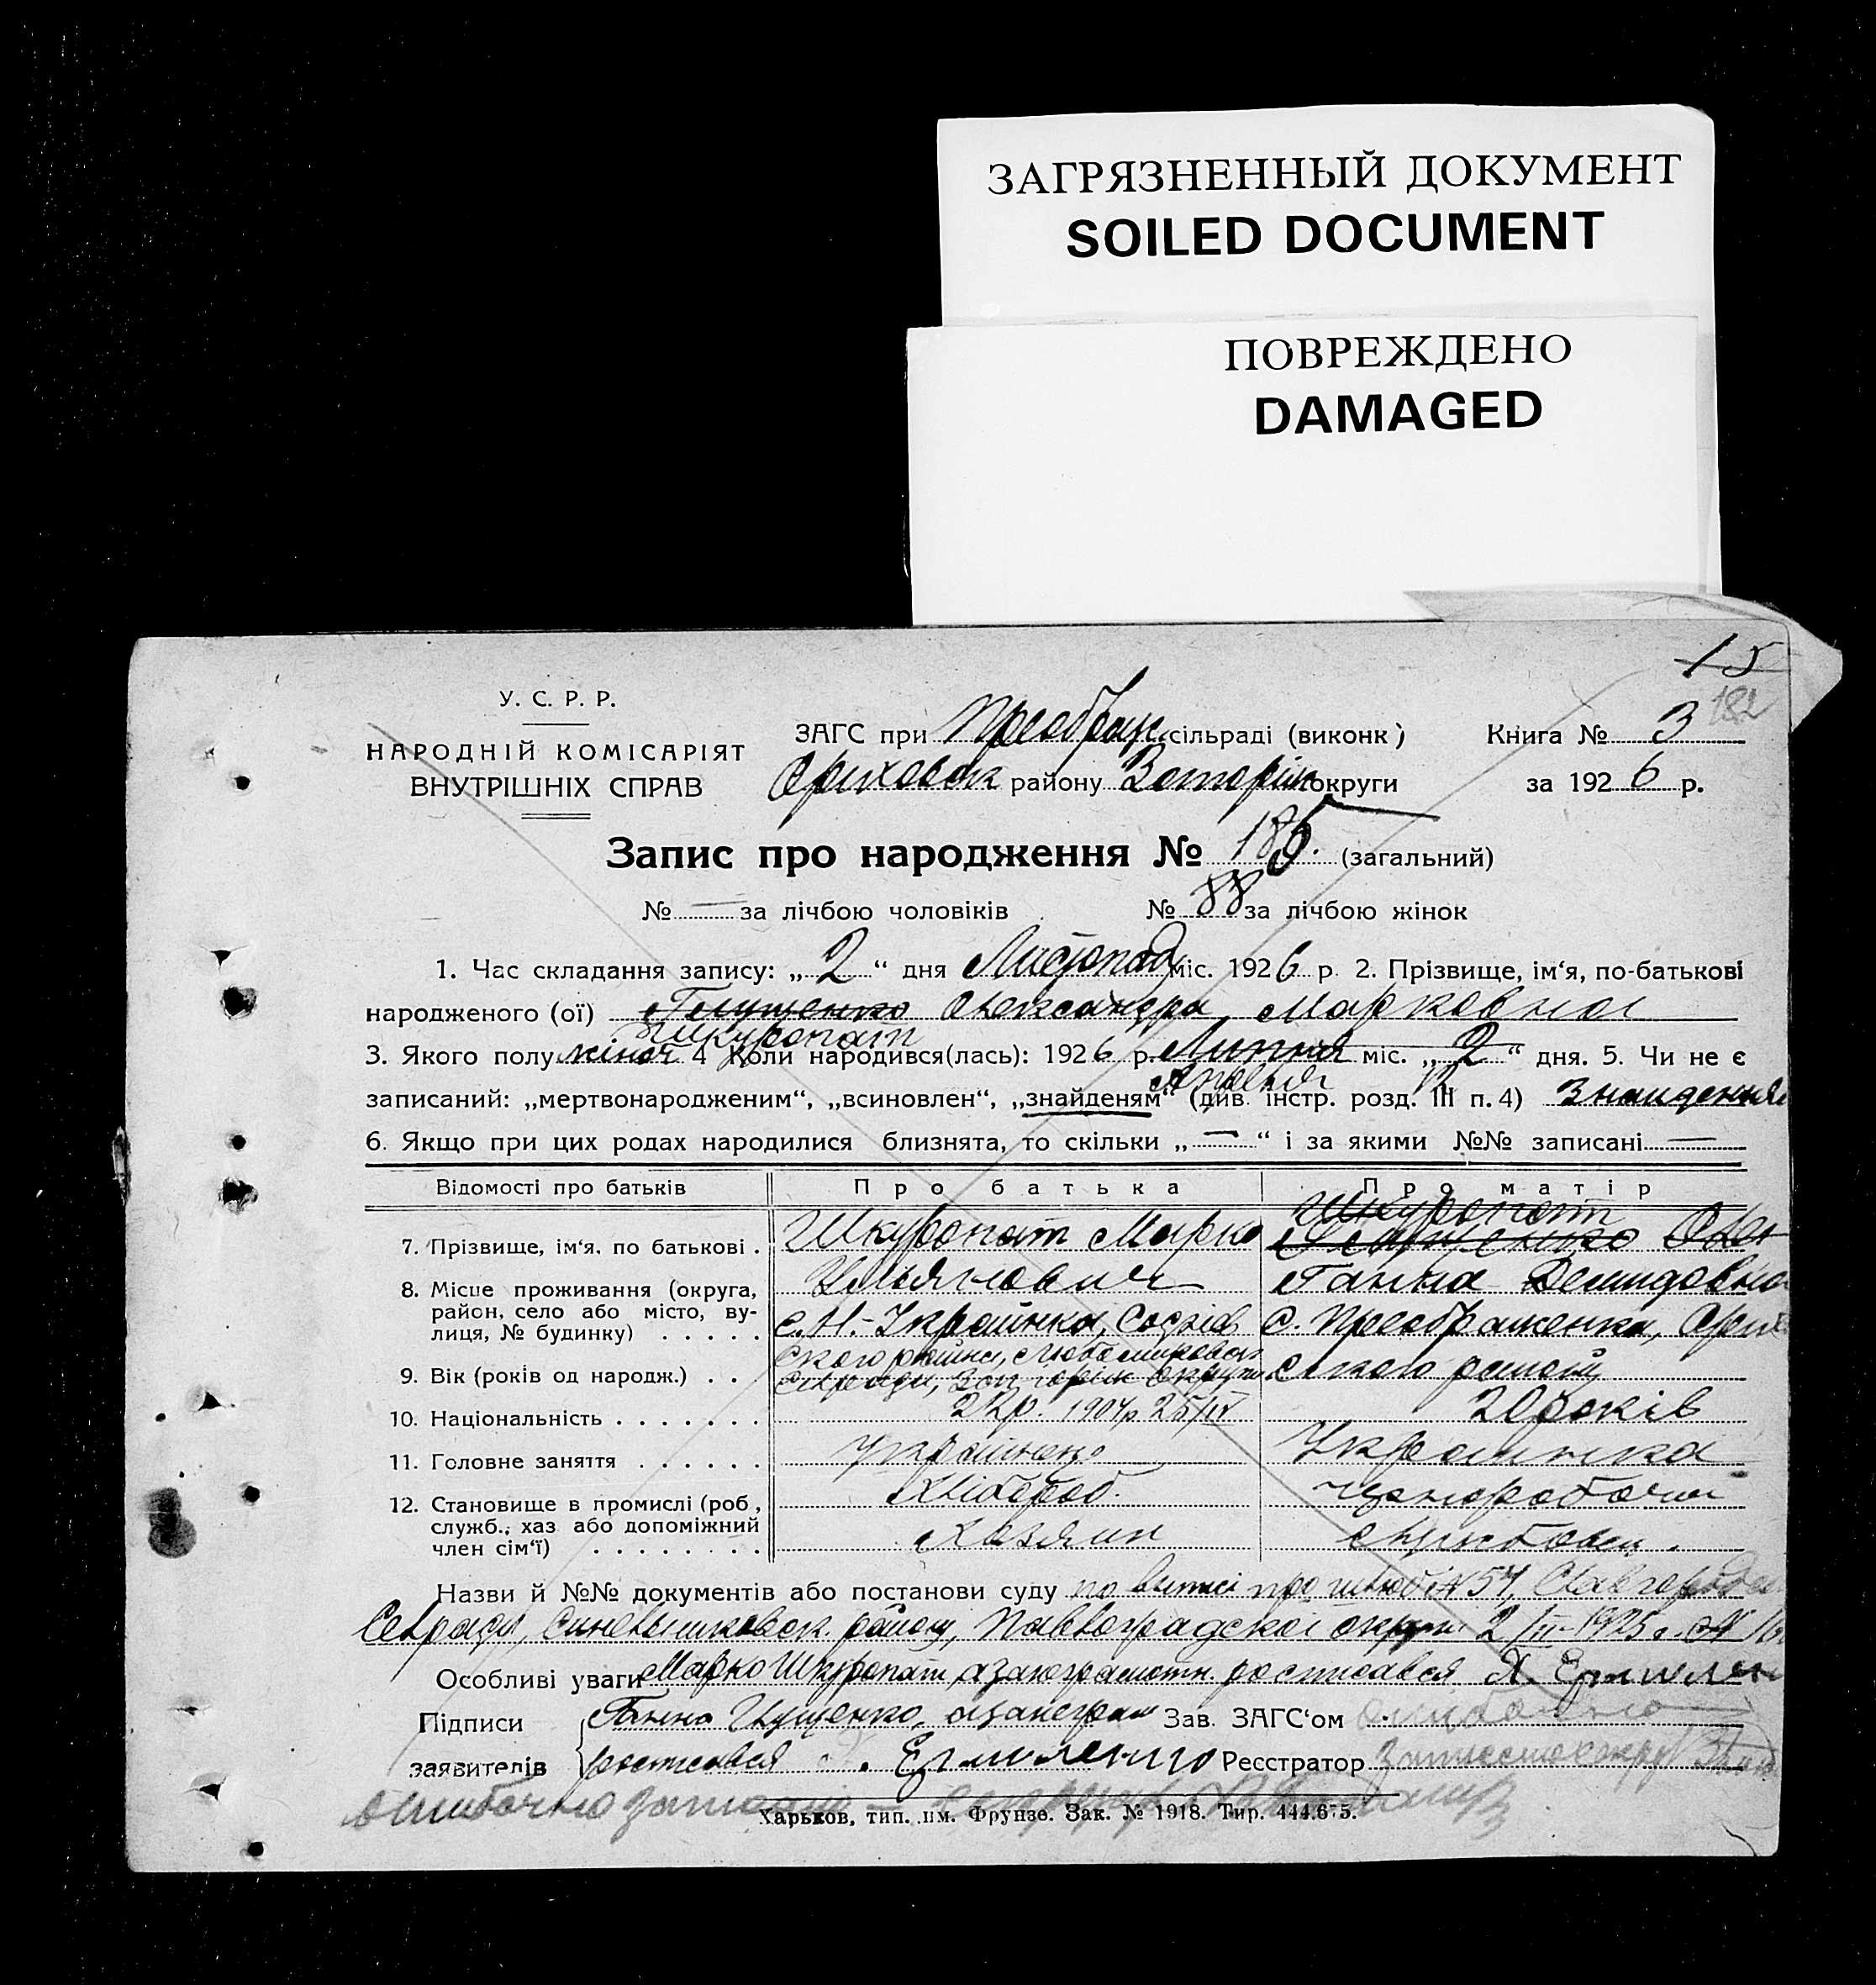 ЗАГРЯЗНЕННЫЙ ДОКУМЕНТ
SOILED DOCUMENT
ПОВРЕЖДЕНО
DAMAGED
15
182
У. С. Р. Р.
НАРОДНІЙ КОМІСАРІЯТ
ВНУТРІШНІХ СПРАВ
ЗАГС при Преображ. сільраді (виконк) Книга № 3
Оріховск району Запоріж округи за 1926 р.
Запис про народження № 185. (загальний)
№ — за лічбою чоловіків № 88 за лічбою жінок
1. Час складання запису: „ 2 “ дня Листопад міс. 1926 р 2. Прізвище, ім‘я, по-батькові
народженого (ої) Олександра Марковна
Шкуропат
3. Якого полу жіноч 4 Коли народився(лась): 1926 р. Липня міс. „ 2 “ дня. 5. Чи не є
записаний: „мертвонародженим“, „всиновлен“, „знайденям“ (див. інстр. розд. III п. 4) Знайденя
6. Якщо при цих родах народилися близнята, то скільки „ — “ і за якими №№ записані —
Відомості про батьків Про батька Про матір
Шкуропат
7. Прізвище, ім‘я, по батькові . Шкуропат Марко
Ганна Демидовна
8. Місце проживання (округа, район, село або місто, вулиця, № будинку) . . . . .
с. Н.-Украйнка, с. Преображенка, Оріх
ского району
9. Вік (років од народж.) . .
22р. 1904р 25/IV 20 років
10. Національність . . . . . . .
Украінець Украинка
11. Головне заняття . . . . . .
Хлібороб. чорноробочий
12. Становище в промислі (роб, служб., хаз або допоміжний член сім‘ї) . . . . . . . .
Хазяин
Назви й №№ документів або постанови суду по виписі про шлюб № 57, Славгород
Сельради, Синельниковск. району, Павлоградскої округи 2/III-1925 р.
Особливі уваги Марко Шкуропат, а за неграмотн. росписався Я. Ермилен
Підписи Ганна, а за неграм Зав. ЗАГС‘ом
заявителів росписався Я. Ермиленко Реєстратор
ошибочно записано
Харьков, тип. им. Фрунзе. Зак. № 1918. Тир. 444.675.